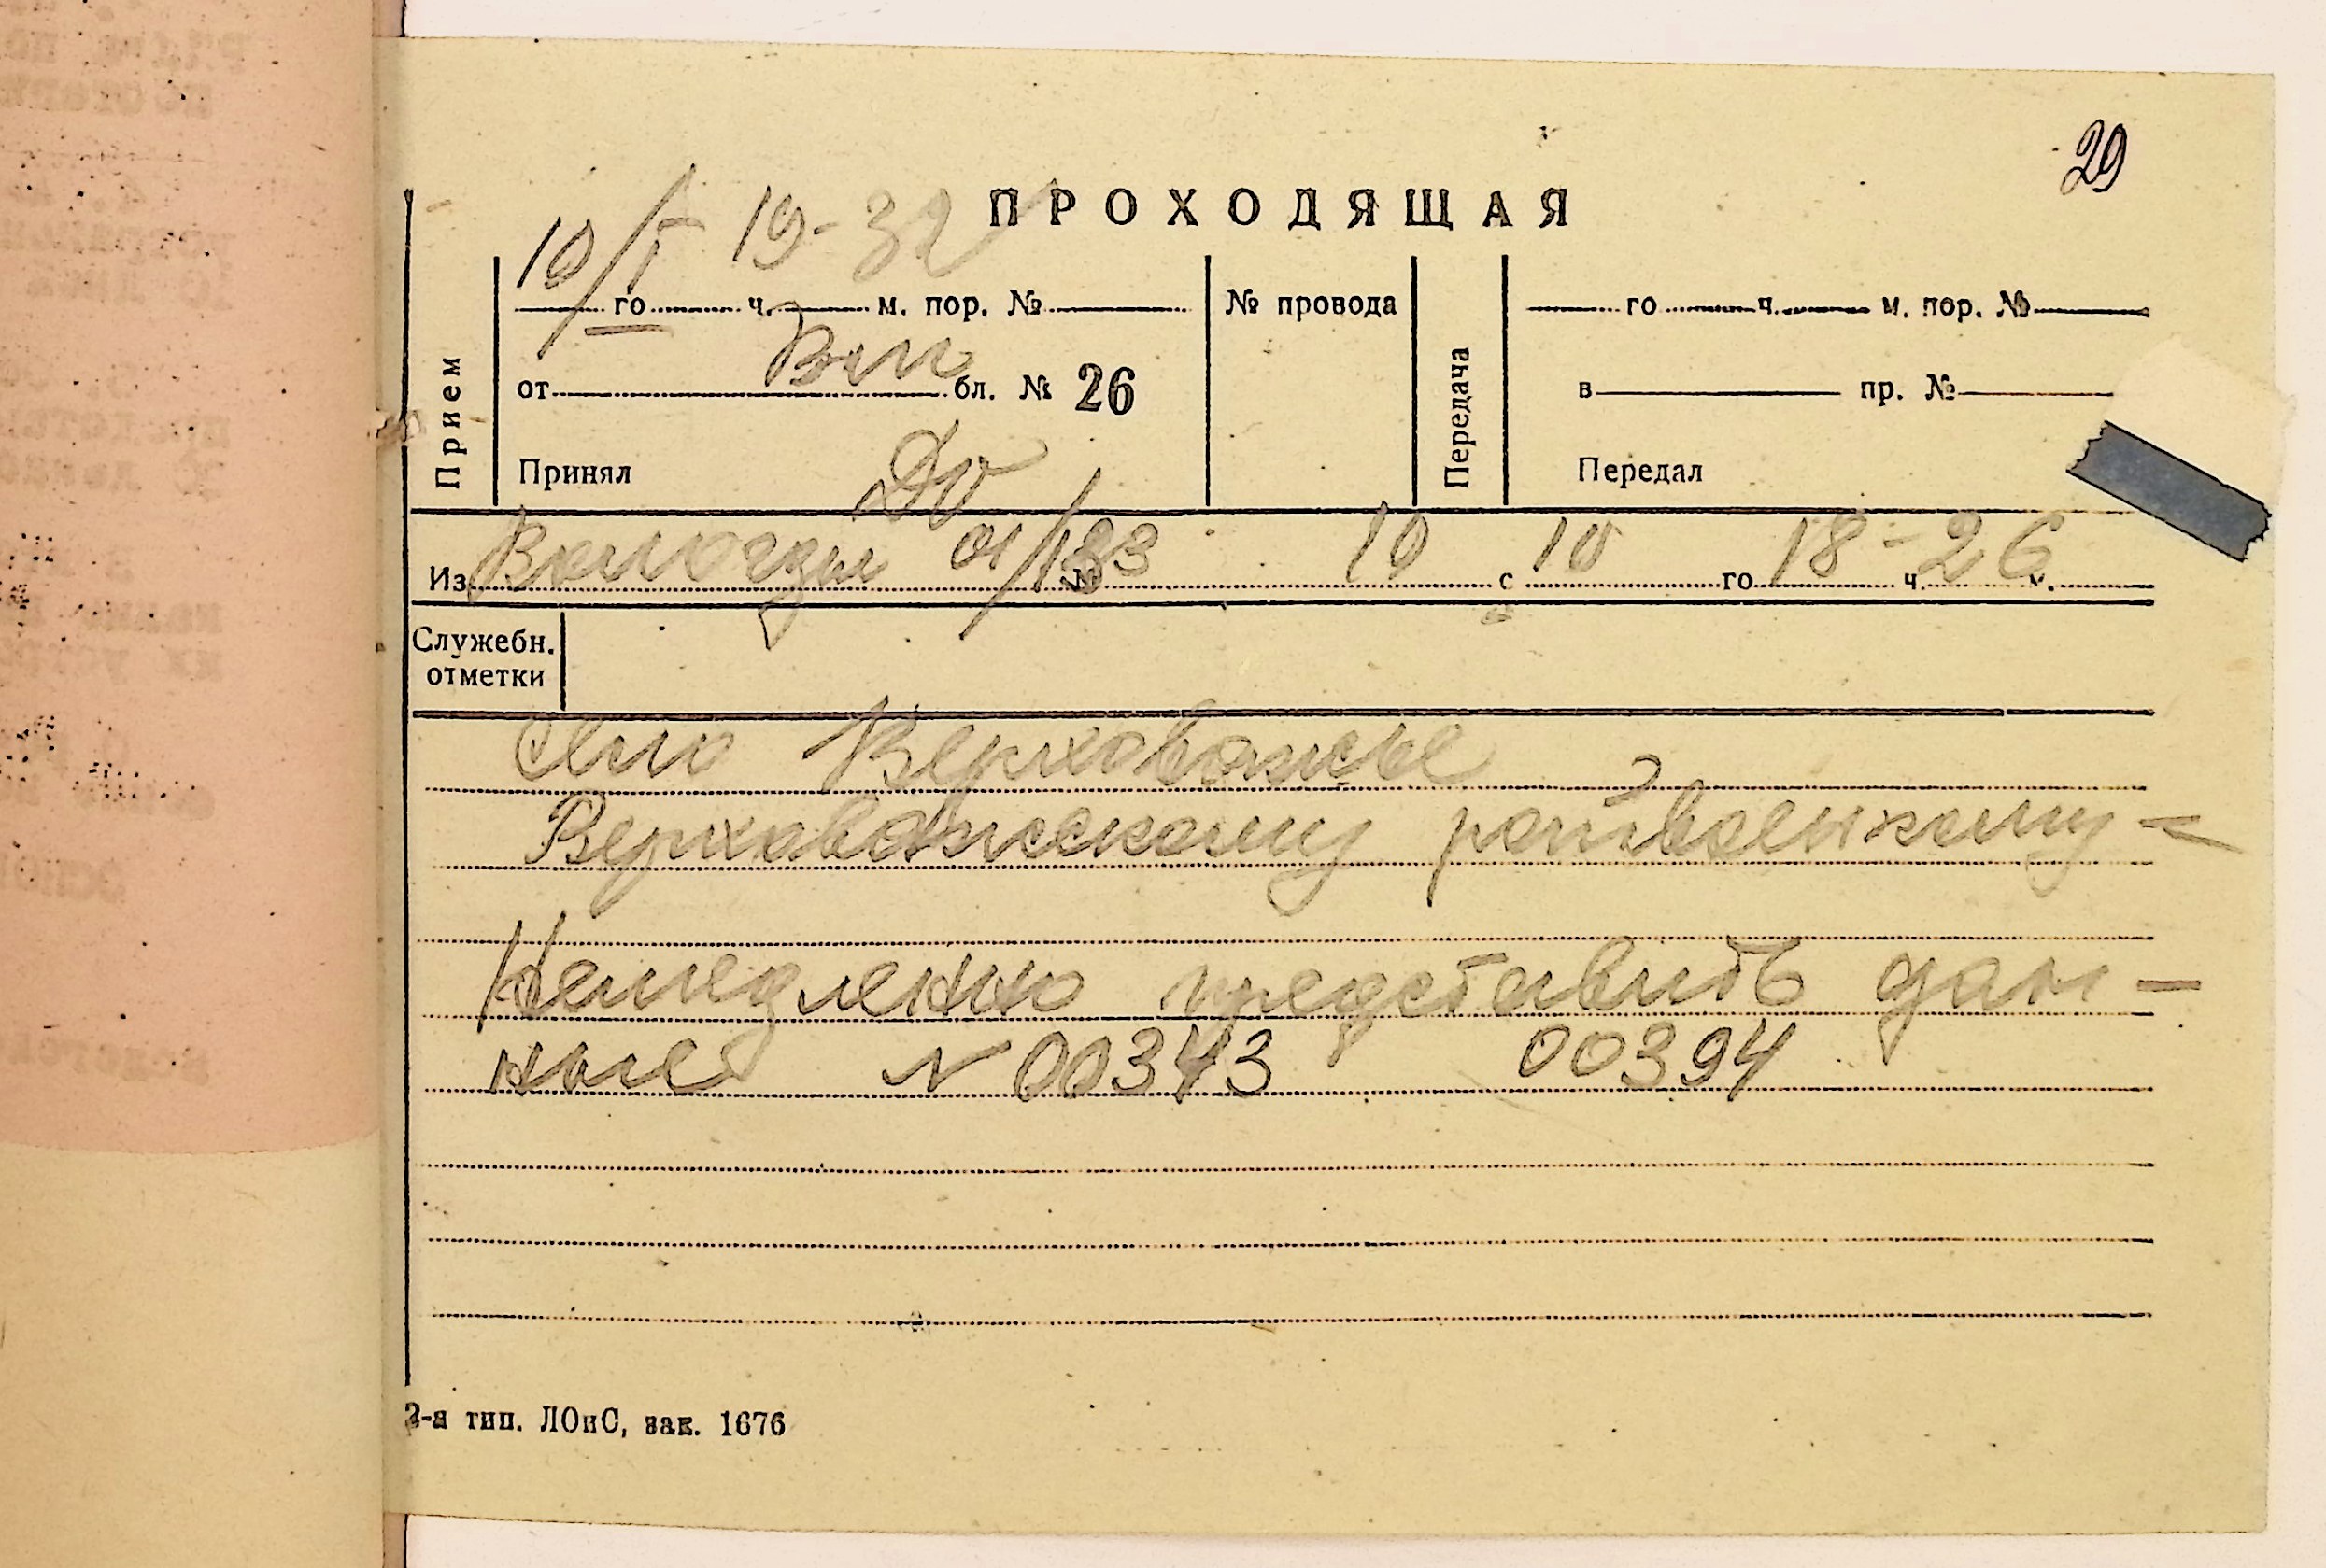 29
ПРОХОДЯЩАЯ
10/I 19-32
го ч. м. пор. №
№ провода
го ч. м. пор. №
Прием
от Вл бл. № 26
Передача
в пр. №
Принял
Передал
Из Вологды 01/183 № 10 с 10 го 18 ч. 26 м.
Служебн.
отметки
Село Верховажье
Верховажскому райвоенкому =
Немедленно представить дан-
ные N 00343 00394
2-я тип. ЛОиС, зак. 1676